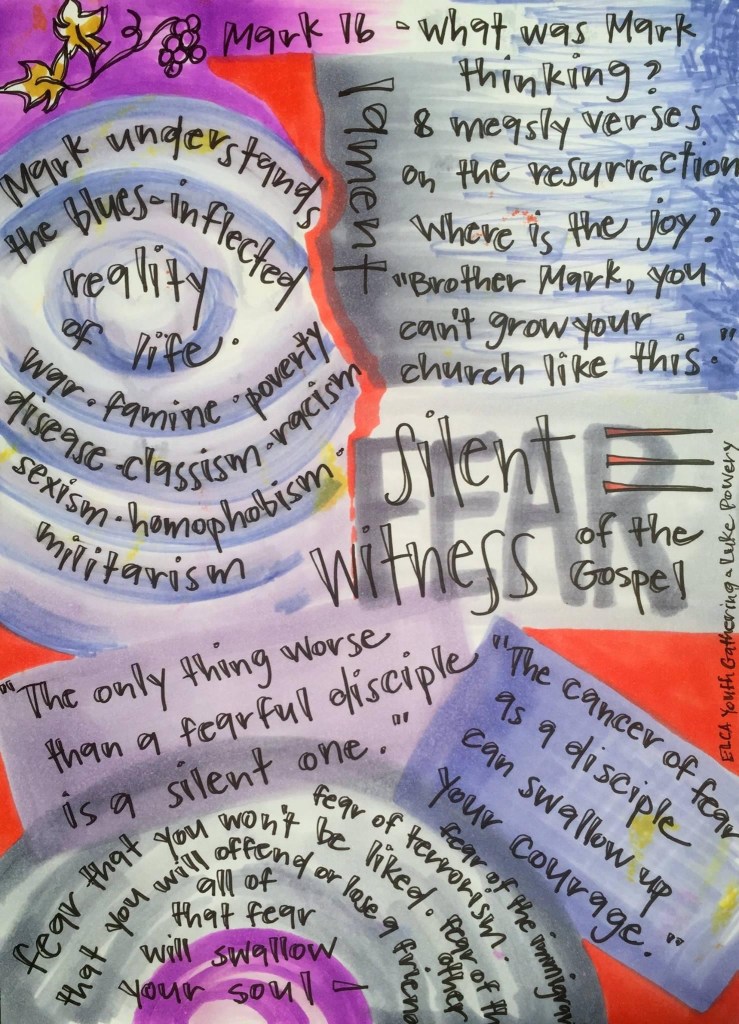 Mark 16 - what was Mark
thinking?
8 measly verses
on the resurrection
Where is the joy?
"Brother Mark, you
can't grow your
church like this."
lament
Mark understands
the blues-inflected
reality
of life.
war · famine · poverty
disease · classism · racism
sexism · homophobism ·
militarism
FEAR
silent
witness
of the
Gospel
ELCA Youth Gathering - Luke Powery
"The only thing worse
than a fearful disciple
is a silent one."
"The cancer of fear
as a disciple
can swallow up
your courage."
fear that you won't be liked.
that you will offend or lose a friend
fear of terrorism.
fear of the immigran
fear of th
other
all of
that fear
will swallow
your soul -